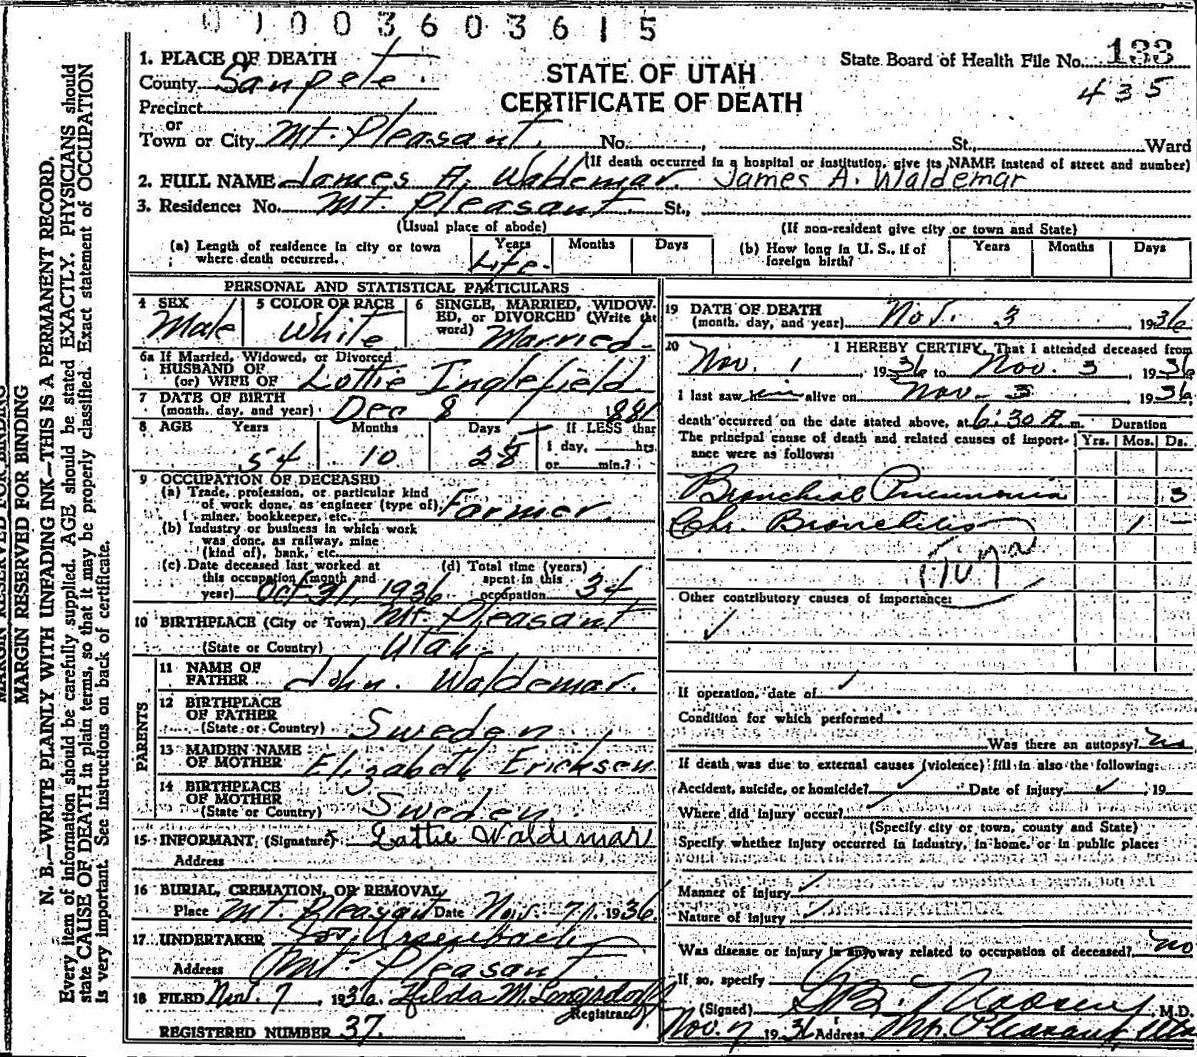 0 1 0 0 3 6 0 3 6 1 5
State Board of Health File No. 133
435
STATE OF UTAH
CERTIFICATE OF DEATH
1. PLACE OF DEATH
County Sanpete.
Precinct
or
Town or City Mt. Pleasant. No. , St., Ward
(If death occurred in a hospital or institution, give its NAME instead of street and number)
2. FULL NAME James A. Waldemar. James A. Waldemar
3. Residence: No. Mt. Pleasant St.,
(Usual place of abode) (If non-resident give city or town and State)
(a) Length of residence in city or town where death occurred. Years Months Days
Life.
(b) How long in U. S., if of foreign birth? Years Months Days
PERSONAL AND STATISTICAL PARTICULARS
4 SEX 5 COLOR OR RACE 6 SINGLE, MARRIED, WIDOW-
ED, or DIVORCED (Write the
word)
Male White Married
6a If Married, Widowed, or Divorced
HUSBAND OF
(or) WIFE OF Lottie Inglefield
7 DATE OF BIRTH
(month, day, and year) Dec 8 1881
8 AGE Years Months Days If LESS than
1 day, hrs.
or min.?
54 10 25
9 OCCUPATION OF DECEASED
(a) Trade, profession, or particular kind
of work done, as engineer (type of)
miner, bookkeeper, etc. Farmer.
(b) Industry or business in which work
was done, as railway, mine
(kind of), bank, etc.
(c) Date deceased last worked at
this occupation (month and
year) Oct. 31, 1936
(d) Total time (years)
spent in this
occupation 34
10 BIRTHPLACE (City or Town) Mt. Pleasant
(State or Country) Utah
PARENTS
11 NAME OF
FATHER John. Waldemar.
12 BIRTHPLACE
OF FATHER
(State or Country) Sweden
13 MAIDEN NAME
OF MOTHER Elizabeth Ericksen
14 BIRTHPLACE
OF MOTHER
(State or Country) Sweden
15 INFORMANT (Signature) Lottie Waldemar
Address
16 BURIAL, CREMATION, OR REMOVAL
Place Mt. Pleasant Date Nov. 7, 1936
17 UNDERTAKER Ursenbach
Address Mt. Pleasant.
18 FILED Nov. 7, 1936. Hilda M. Longsdorf
Registrar
REGISTERED NUMBER 37
19 DATE OF DEATH
(month, day, and year) Nov. 3 1936
20 I HEREBY CERTIFY, That I attended deceased from
Nov. 1, 1936 to Nov. 3, 1936
I last saw him alive on Nov. 3 1936,
death occurred on the date stated above, at 6:30 A. m.
The principal cause of death and related causes of import-
ance were as follows:
Duration
Yrs. Mos. Ds.
Bronchial Pneumonia 3
Chr. Bronchitis 1 –
107a
Other contributory causes of importance:
✓
If operation, date of ✓
Condition for which performed
Was there an autopsy? no
If death was due to external causes (violence) fill in also the following:
Accident, suicide, or homicide? ✓ Date of injury ✓, 19
Where did injury occur?
(Specify city or town, county and State)
Specify whether injury occurred in industry, in home, or in public place:
Manner of injury ✓
Nature of injury ✓
Was disease or injury in anyway related to occupation of deceased? no
If so, specify
(Signed) M.D.
Nov 7 1936 Address Mt. Pleasant, Utah
MARGIN RESERVED FOR BINDING
MARGIN RESERVED FOR BINDING
N. B.—WRITE PLAINLY WITH UNFADING INK—THIS IS A PERMANENT RECORD.
Every item of information should be carefully supplied. AGE should be stated EXACTLY. PHYSICIANS should
state CAUSE OF DEATH in plain terms, so that it may be properly classified. Exact statement of OCCUPATION
is very important. See instructions on back of certificate.